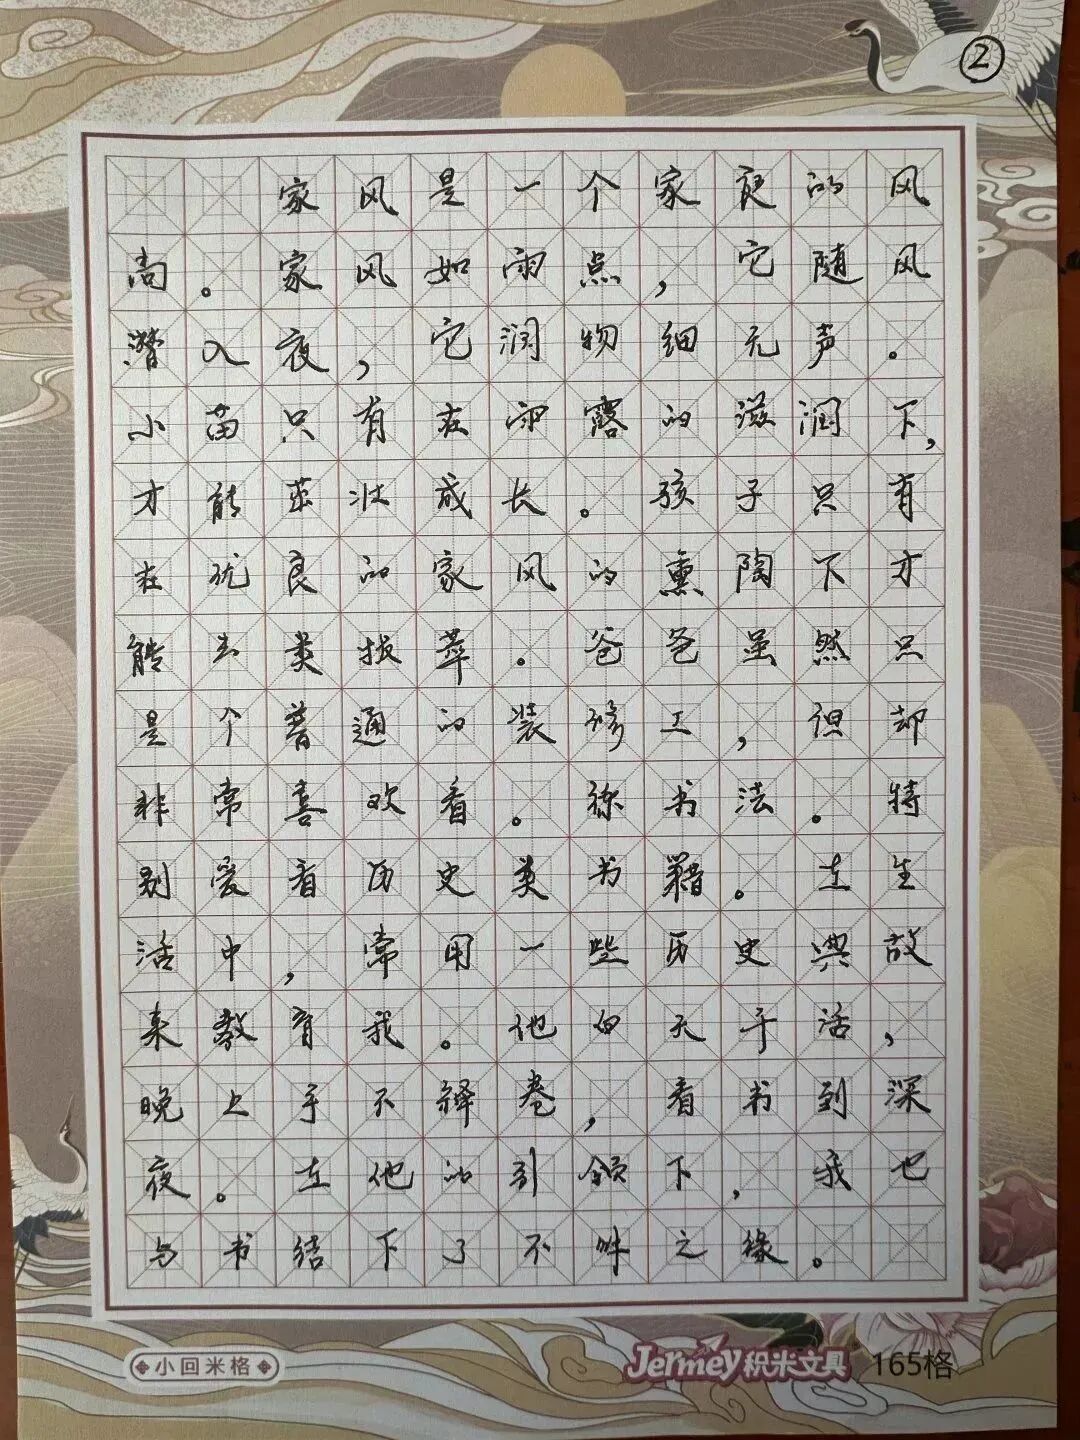 ②
家风是一个家庭的风
尚。家风如雨点，它随风
潜入夜，它润物细无声。
小苗只有在雨露的滋润下，
才能茁壮成长。孩子只有
在优良的家风的熏陶下才
能出类拔萃。爸爸虽然只
是个普通的装修工，但却
非常喜欢看。练书法。特
别爱看历史类书籍。在生
活中，常用一些历史典故
来教育我。他白天干活，
晚上手不释卷，看书到深
夜。在他的引领下，我也
与书结下了不解之缘。
小回米格
Jermey积米文具 165格